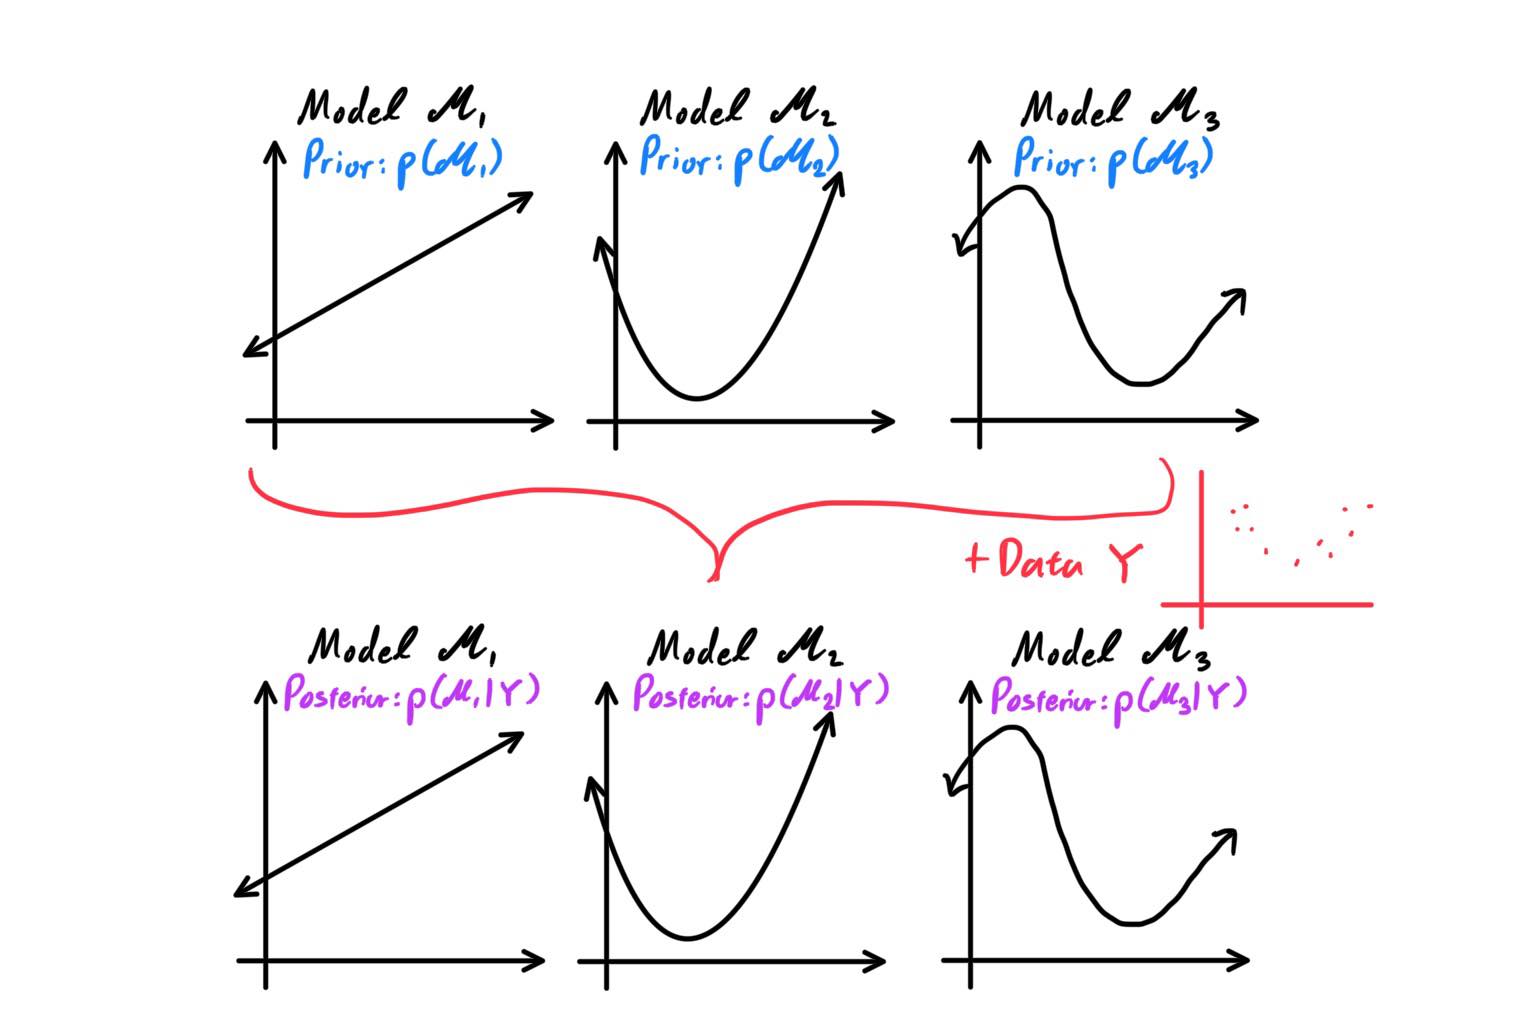 Model M₁
Prior: p(M₁)
Model M₂
Prior: p(M₂)
Model M₃
Prior: p(M₃)
+ Data Y
Model M₁
Posterior: p(M₁|Y)
Model M₂
Posterior: p(M₂|Y)
Model M₃
Posterior: p(M₃|Y)